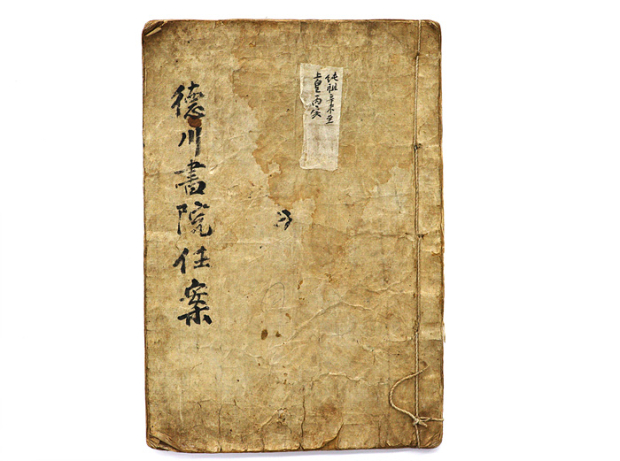 德川書院任案
純祖辛未至
上皇丙